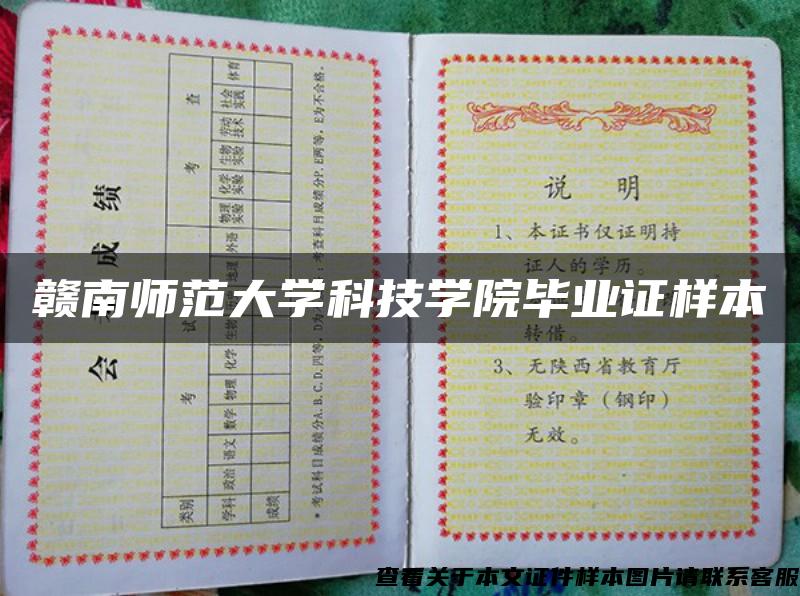 会 成 绩
类别 考 试 考 查
学科 政治 语文 数学 物理 化学 生物 地理 外语 物理实验 化学实验 生物实验 劳动技术 社会实践 体育
成绩
*考试科目成绩分A.B.C.D.四等,D为 :考查科目成绩分P、E两等,E为不合格。
说 明
1、本证书仅证明持
证人的学历。
转借。
3、无陕西省教育厅
验印章(钢印)
无效。
赣南师范大学科技学院毕业证样本
查看关于本文证件样本图片请联系客服